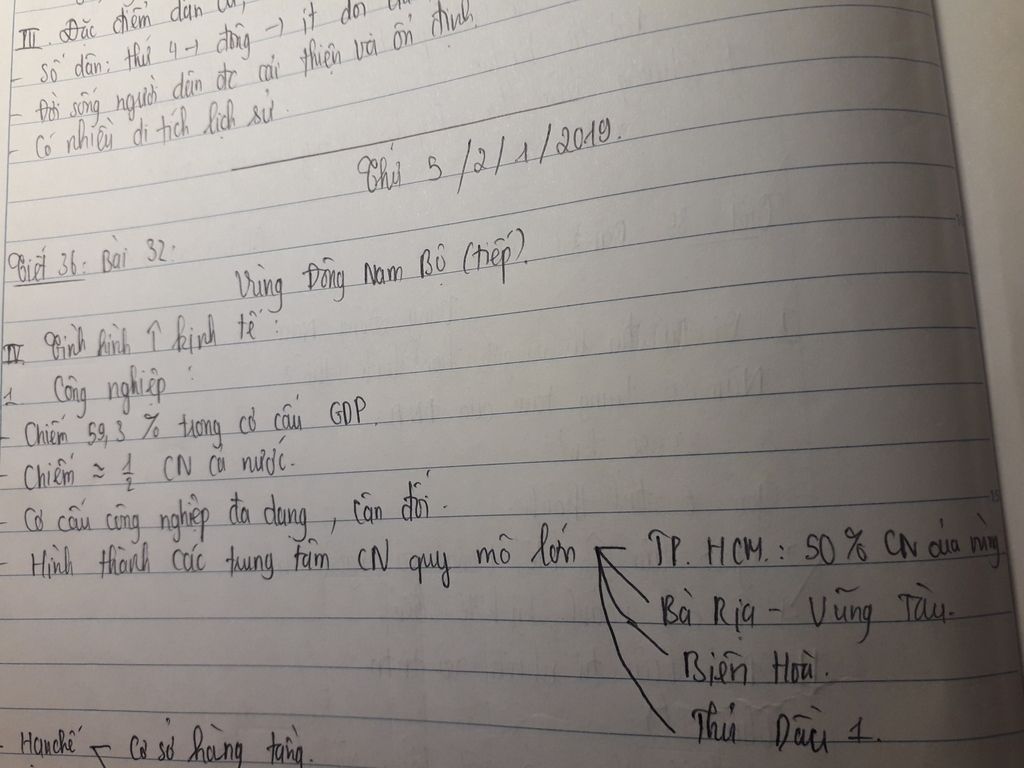 III. Đặc điểm dân cư,
- Số dân: thứ 4 → đông → ít đời
- Đời sống người dân đc cải thiện và ổn định
- Có nhiều di tích lịch sử.
Thứ 5/2/1/2019.
Tiết 36: Bài 32:
Vùng Đông Nam Bộ (tiếp).
IV Tình hình ↑ kinh tế:
1 Công nghiệp:
- Chiếm 59,3 % trong cơ cấu GDP.
- Chiếm ≈ 1/2 CN cả nước.
- Cơ cấu công nghiệp đa dạng, cân đối.
- Hình thành các trung tâm CN quy mô lớn TP. HCM.: 50 % CN của vùng
Bà Rịa - Vũng Tàu.
Biên Hoà.
Thủ Dầu 1.
- Hạn chế Cơ sở hàng tầng.